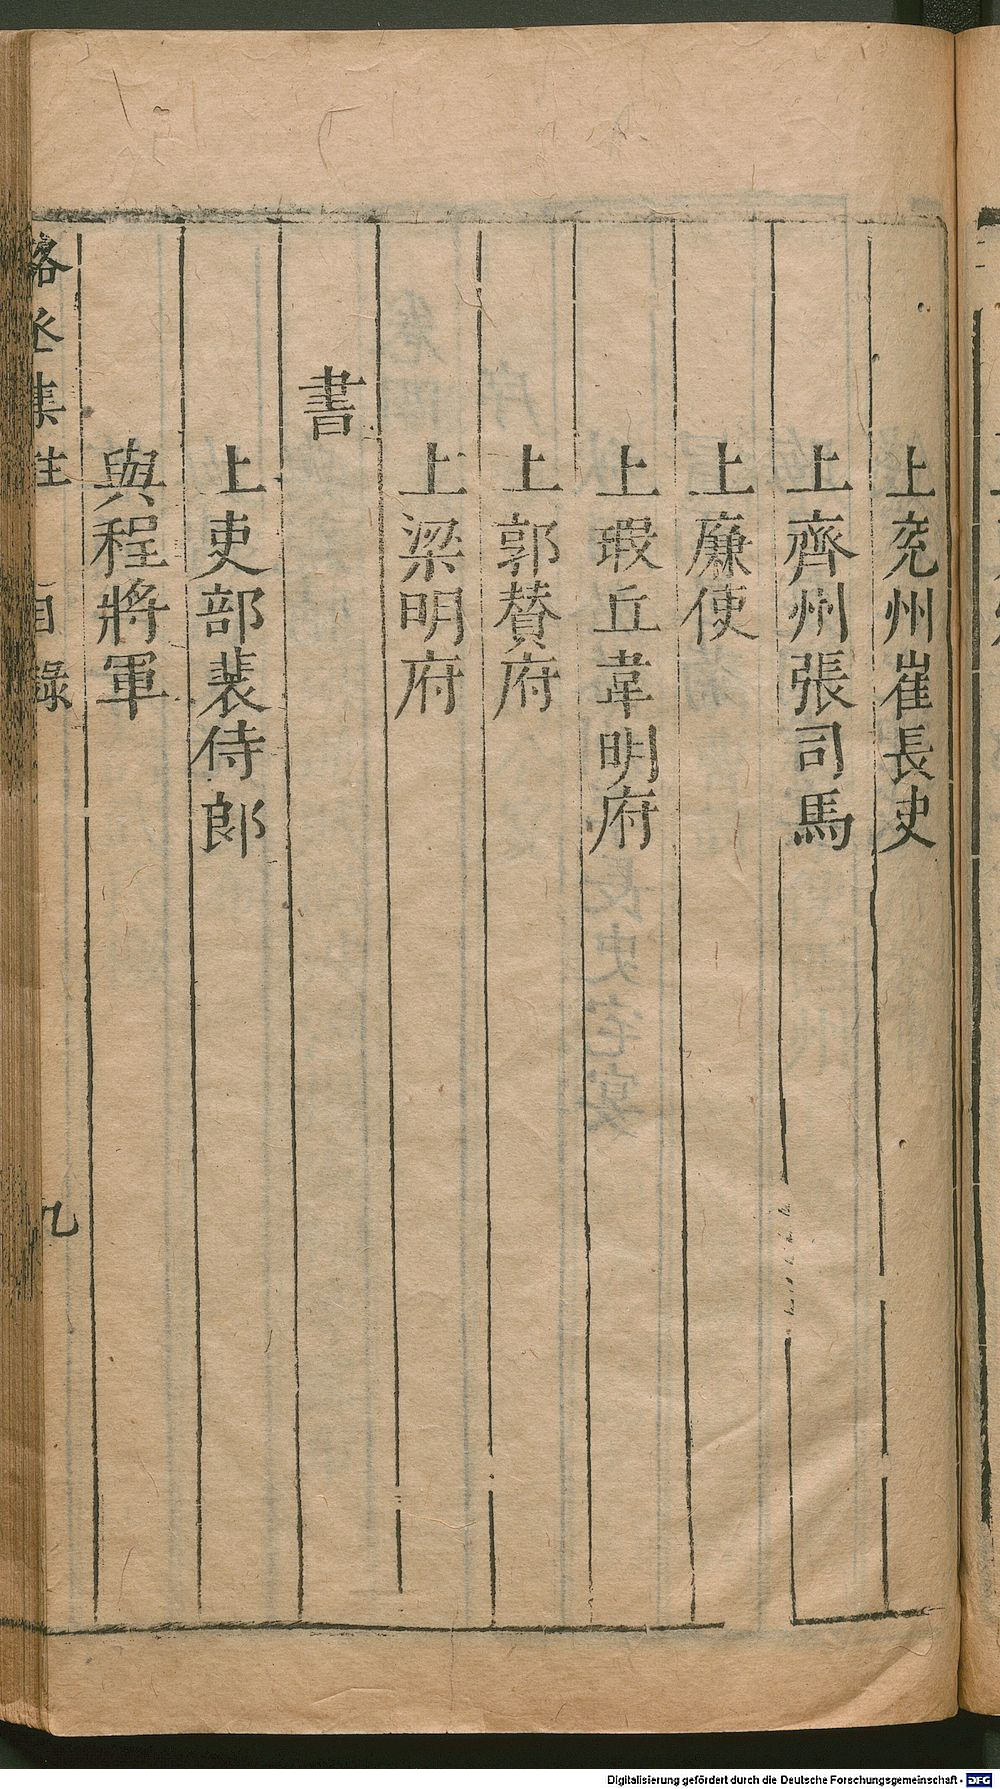 上兖州崔長史
上齊州張司馬
上廉使
上瑕丘韋明府
上郭賛府
上梁明府
書
上吏部裴侍郎
與程將軍
駱丞集註
目錄
九
Digitalisierung gefördert durch die Deutsche Forschungsgemeinschaft - DFG